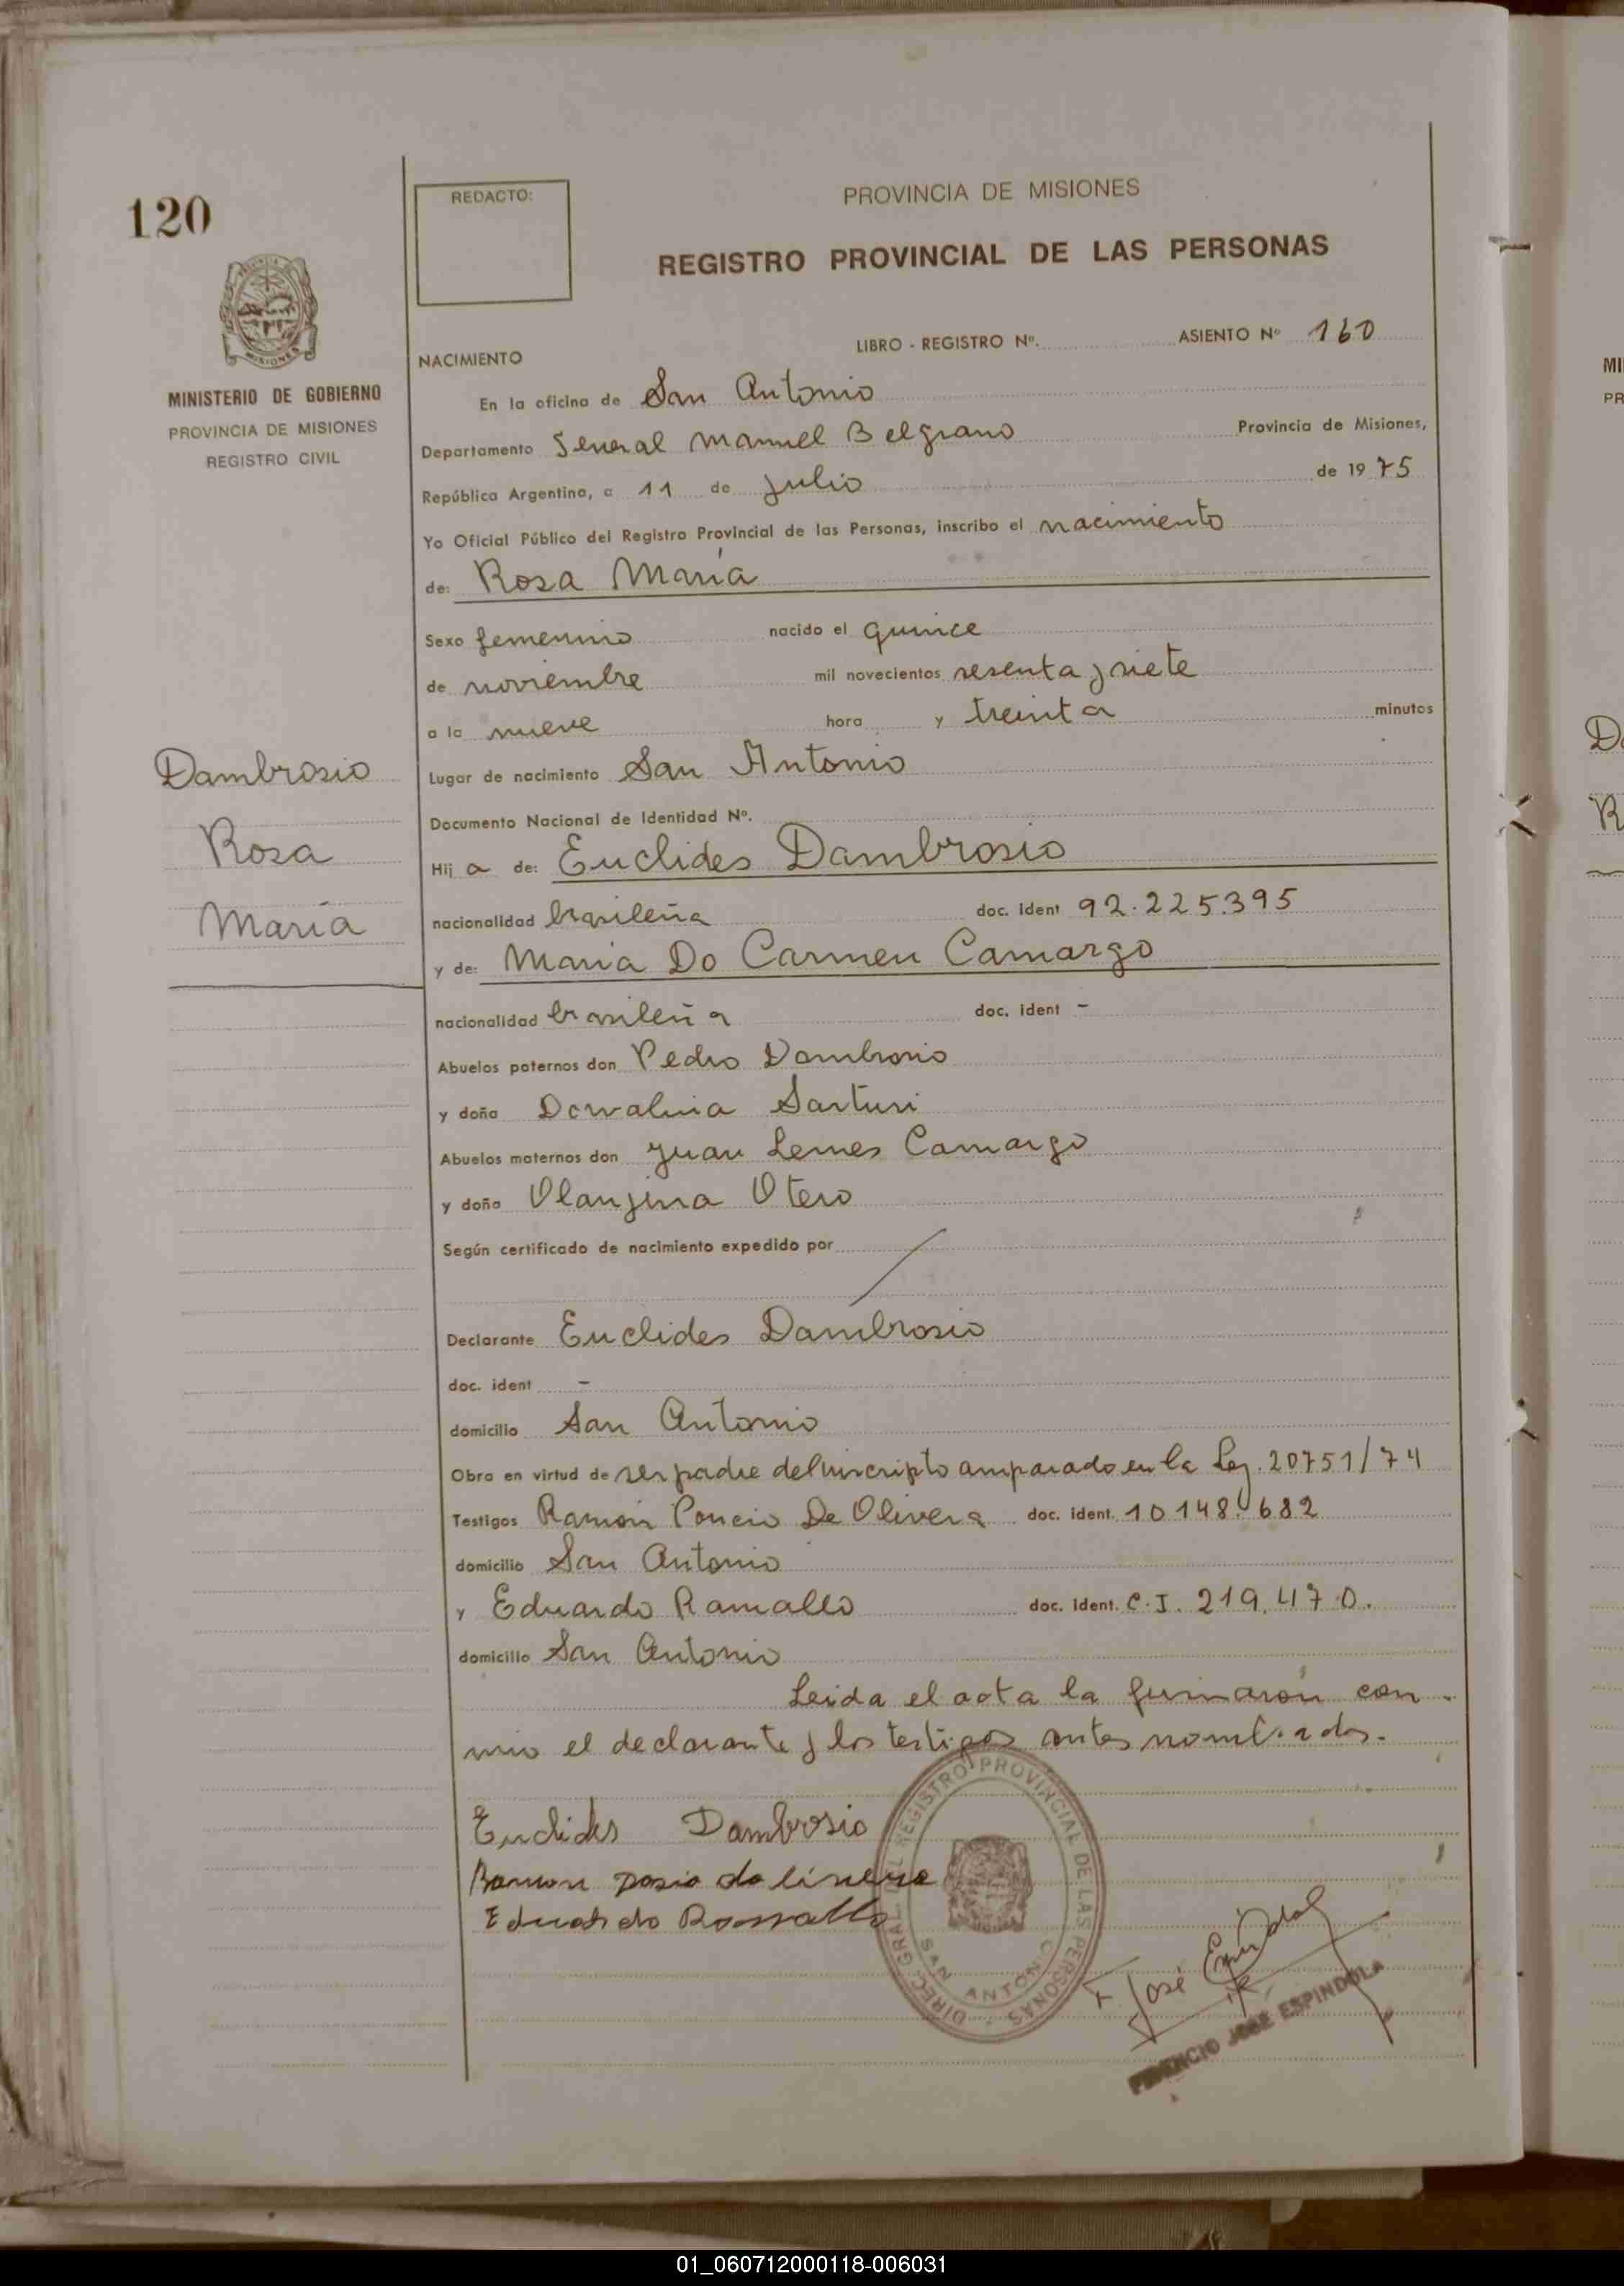 120
REDACTO:
PROVINCIA DE MISIONES
REGISTRO PROVINCIAL DE LAS PERSONAS
MINISTERIO DE GOBIERNO
PROVINCIA DE MISIONES
REGISTRO CIVIL
NACIMIENTO LIBRO - REGISTRO Nº. ASIENTO Nº 160
En la oficina de San Antonio
Departamento General Manuel Belgrano Provincia de Misiones,
República Argentina, a 11 de Julio de 1975
Yo Oficial Público del Registro Provincial de las Personas, inscribo el nacimiento
de: Rosa María
Sexo femenino nacido el quince
de noviembre mil novecientos sesenta y siete
a la nueve hora y treinta minutos
Dambrosio
Rosa
María
Lugar de nacimiento San Antonio
Documento Nacional de Identidad Nº.
Hij a de: Euclides Dambrosio
nacionalidad brasileña doc. ident 92.225.395
y de: Maria Do Carmen Camargo
nacionalidad brasileña doc. ident -
Abuelos paternos don Pedro Dambrosio
y doña Dorvalina Sarturi
Abuelos maternos don Juan Lemes Camargo
y doña Otero
Según certificado de nacimiento expedido por
Declarante Euclides Dambrosio
doc. ident -
domicilio San Antonio
Obra en virtud de ser padre del inscripto amparado en la Ley. 20751/74
Testigos Ramón De Olivera doc. ident. 10148.682
domicilio San Antonio
y Eduardo Ramallo doc. ident. C.I. 219.470.
domicilio San Antonio
Leida el acta la firmaron con
mio el declarante y los testigos antes nombrados.
Euclides Dambrosio
Ramon
Eduardo Ramallo
DIREC. GRAL. DEL REGISTRO PROVINCIAL DE LAS PERSONAS
SAN ANTONIO
José
JOSE ESPINDOLA
01_060712000118-006031